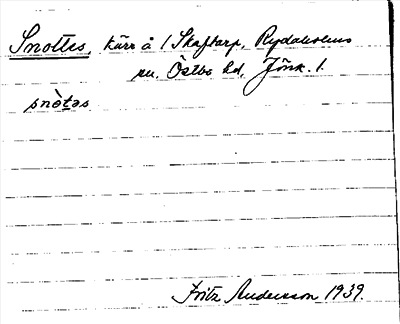 Snottes, kärr å 1 Skaftarp, Rydaholms
sn, Östbo hd, Jönk. l.
snòtəs
Fritz Andersson 1939.